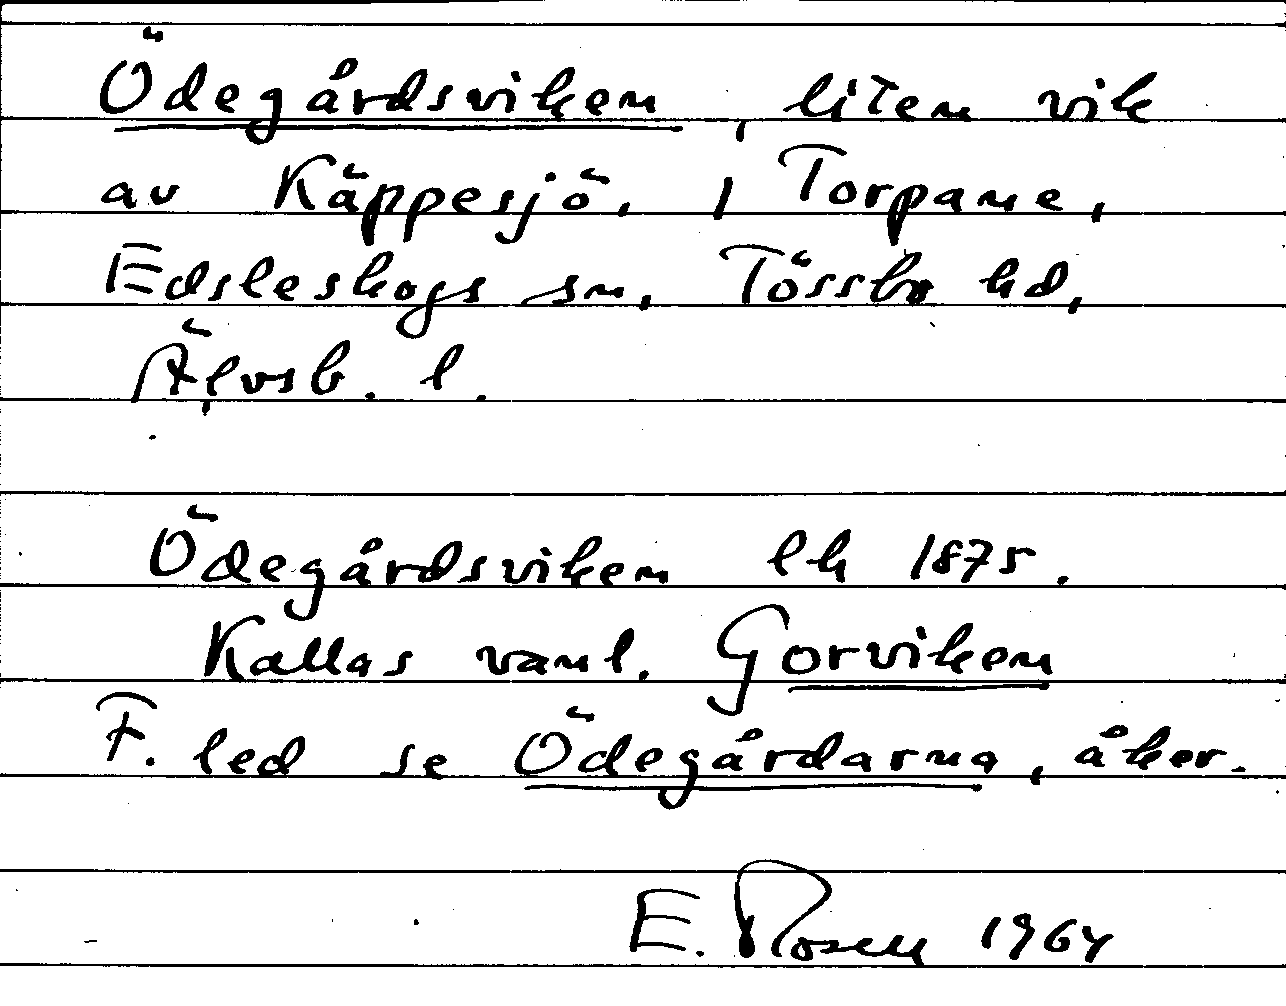 Ödegårdsviken, liten vik
av Käppesjö, i Torpane,
Edsleskogs sn, Tössbo hd,
Älvsb. l.
Ödegårdsviken lk 1875.
Kallas vanl. Gorviken
F. led se Ödegårdarna, åker.
E. Rosen 1964